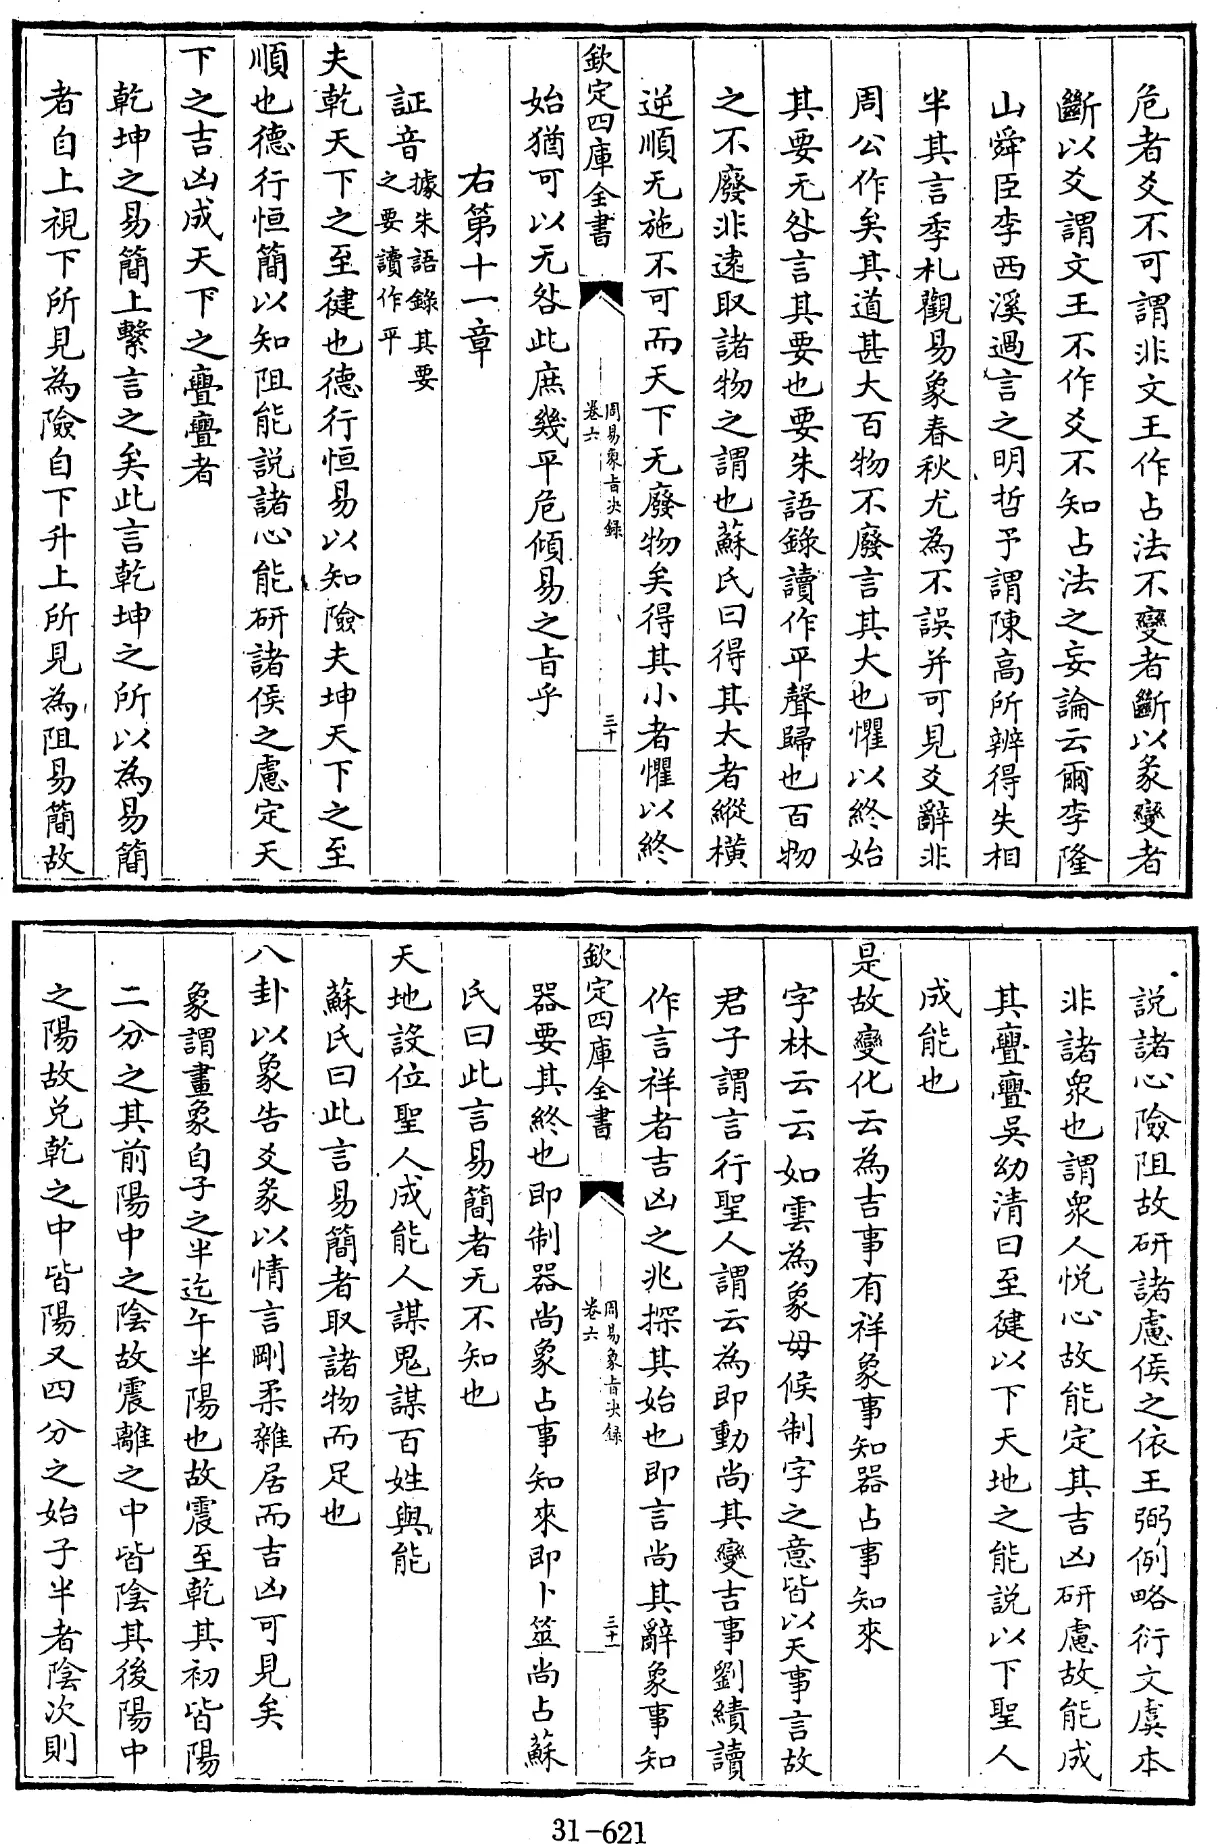 危者爻不可謂非文王作占法不變者斷以彖變者
斷以爻謂文王不作爻不知占法之妄論云爾李隆
山舜臣李西溪過言之明哲予謂陳高所辨得失相
半其言季札觀易象春秋尤為不誤并可見爻辭非
周公作矣其道甚大百物不廢言其大也懼以終始
其要无咎言其要也要朱語錄讀作平聲歸也百物
之不廢非逺取諸物之謂也蘇氏曰得其大者縱橫
逆順无施不可而天下无廢物矣得其小者懼以終
欽定四庫全書
周易象旨決録
卷六
三十
始猶可以无咎此庶幾平危傾易之旨乎
右第十一章
証音據朱語錄其要
之要讀作平
夫乾天下之至健也德行恒易以知險夫坤天下之至
順也德行恒簡以知阻能説諸心能研諸侯之慮定天
下之吉凶成天下之亹亹者
乾坤之易簡上繫言之矣此言乾坤之所以為易簡
者自上視下所見為險自下升上所見為阻易簡故
説諸心險阻故研諸慮侯之依王弼例略衍文虞本
非諸衆也謂衆人悦心故能定其吉凶研慮故能成
其亹亹吳幼清曰至健以下天地之能説以下聖人
成能也
是故變化云為吉事有祥象事知器占事知來
字林云云如雲為象母候制字之意皆以天事言故
君子謂言行聖人謂云為即動尚其變吉事劉績讀
作言祥者吉凶之兆探其始也即言尚其辭象事知
欽定四庫全書
周易象旨決録
卷六
三十一
器要其終也即制器尚象占事知來即卜筮尚占蘇
氏曰此言易簡者无不知也
天地設位聖人成能人謀鬼謀百姓與能
蘇氏曰此言易簡者取諸物而足也
八卦以象告爻彖以情言剛柔雜居而吉凶可見矣
象謂畫象自子之半迄午半陽也故震至乾其初皆陽
二分之其前陽中之陰故震離之中皆陰其後陽中
之陽故兌乾之中皆陽又四分之始子半者陰次則
31-621